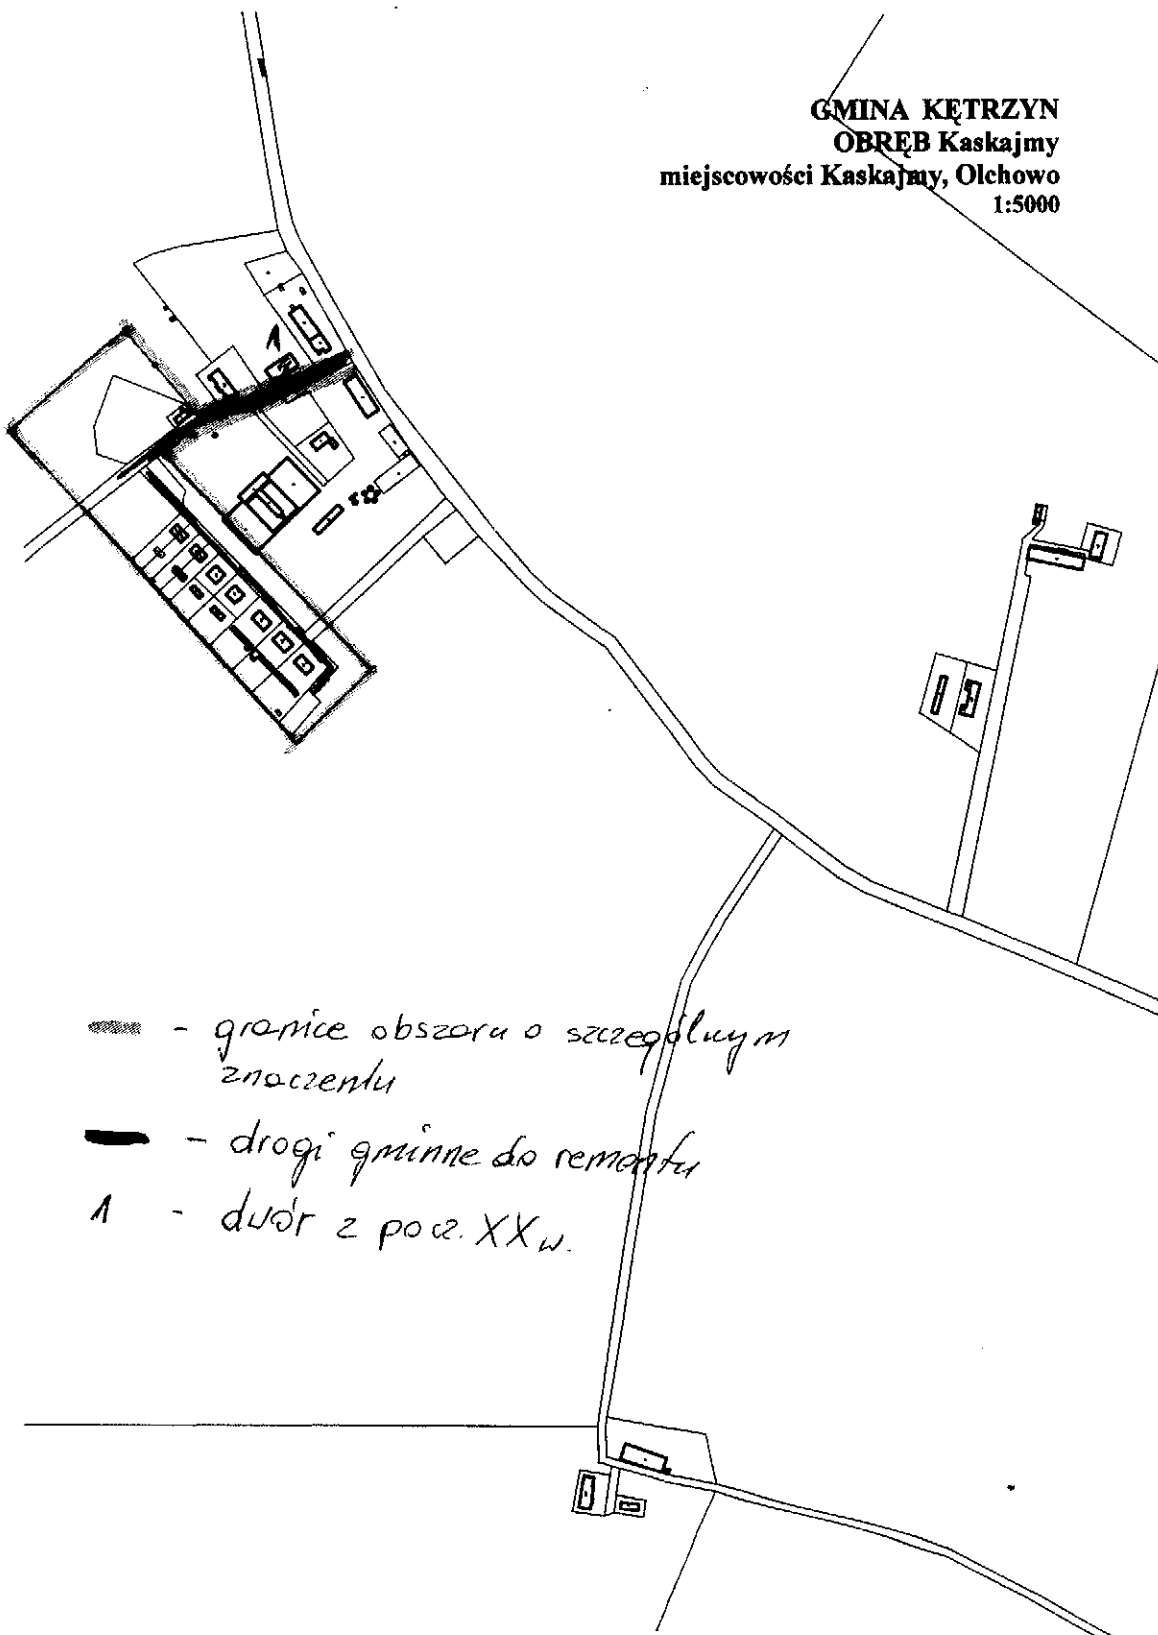 GMINA KĘTRZYN
OBRĘB Kaskajmy
miejscowości Kaskajmy, Olchowo
1:5000
1
- granice obszaru o szczególnym
znaczeniu
- drogi gminne do remontu
1 - dwór z pocz. XX w.